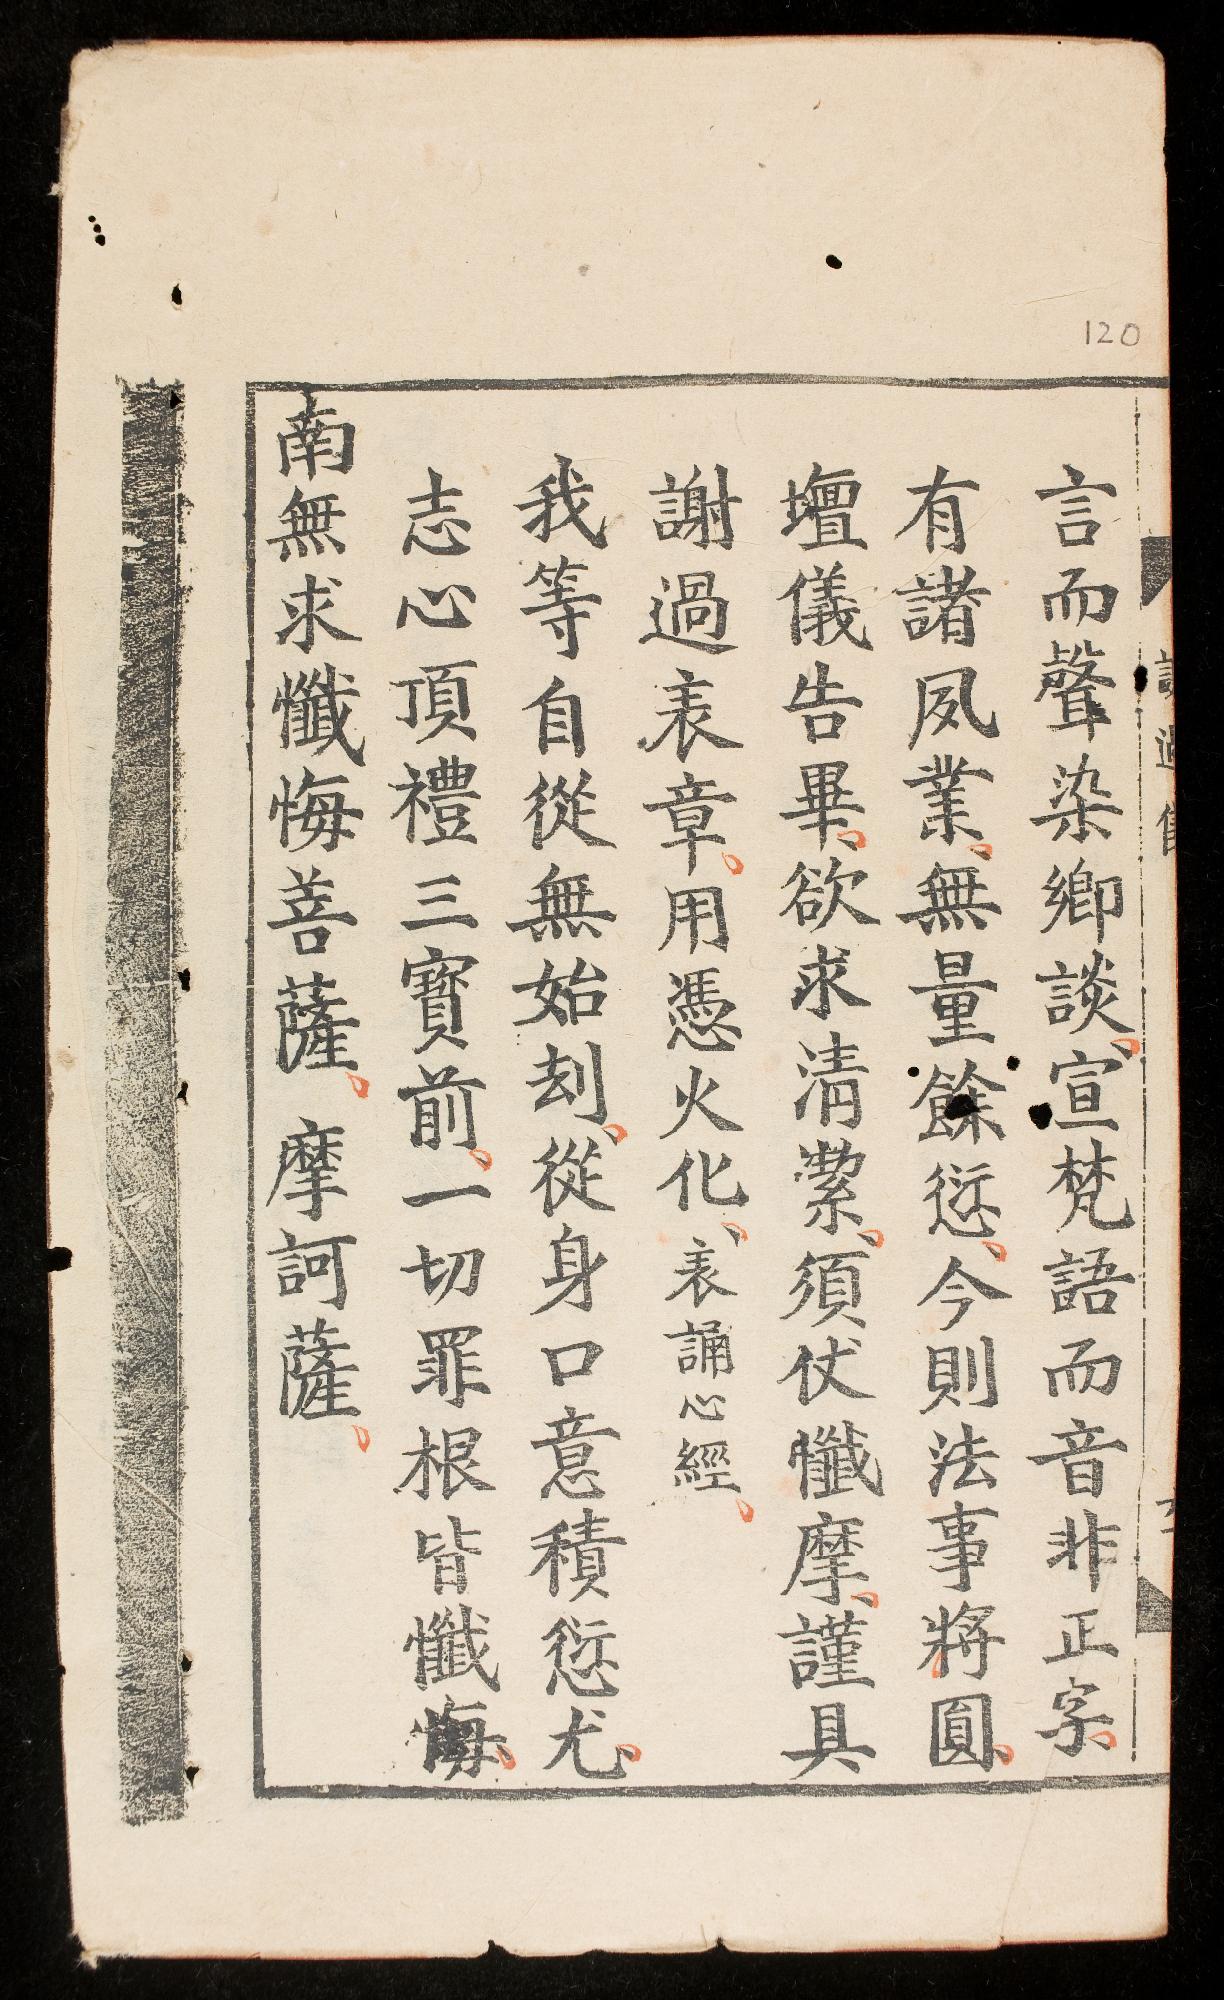 120
言而聲染鄉談、宣梵語而音非正字、
有諸夙業、無量餘愆、今則法事將圓、
壇儀告畢、欲求清縈、須仗懺摩、謹具
謝過表章、用憑火化、表誦心經、
我等自從無始刦、從身口意積愆尤、
志心頂禮三寶前、一切罪根皆懺悔、
南無求懺悔菩薩、摩訶薩、